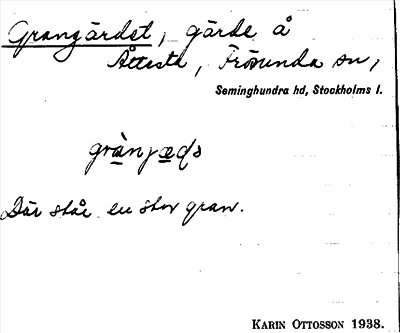 Grangärdet, gärde å
Åttesta, Frösunda sn,
Seminghundra hd, Stockholms l.
grànjæds
Där står en stor gran.
KARIN OTTOSSON 1938.